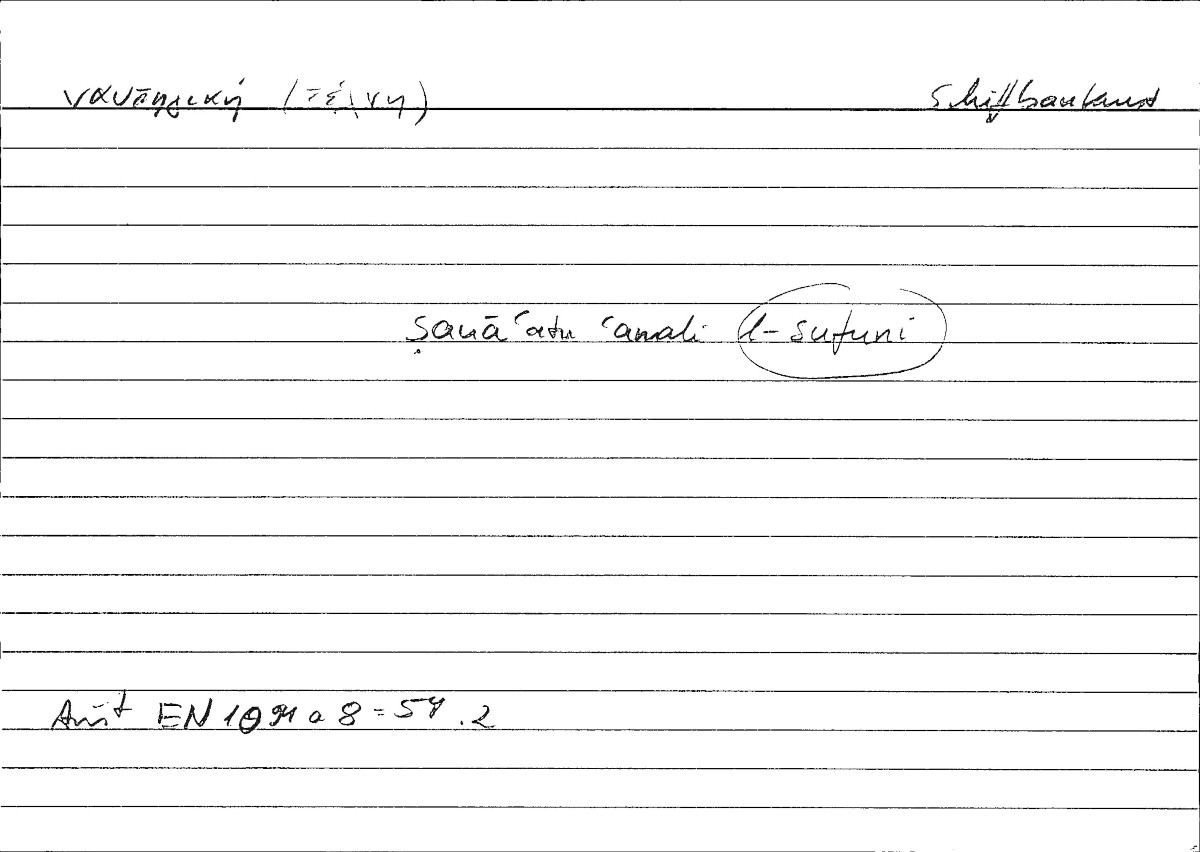 ναυπηγική (τέχνη) Schiffbaukunst
ṣanāʿatu ʿamali l-sufuni
Arist EN 1094 a 8 = 54.2